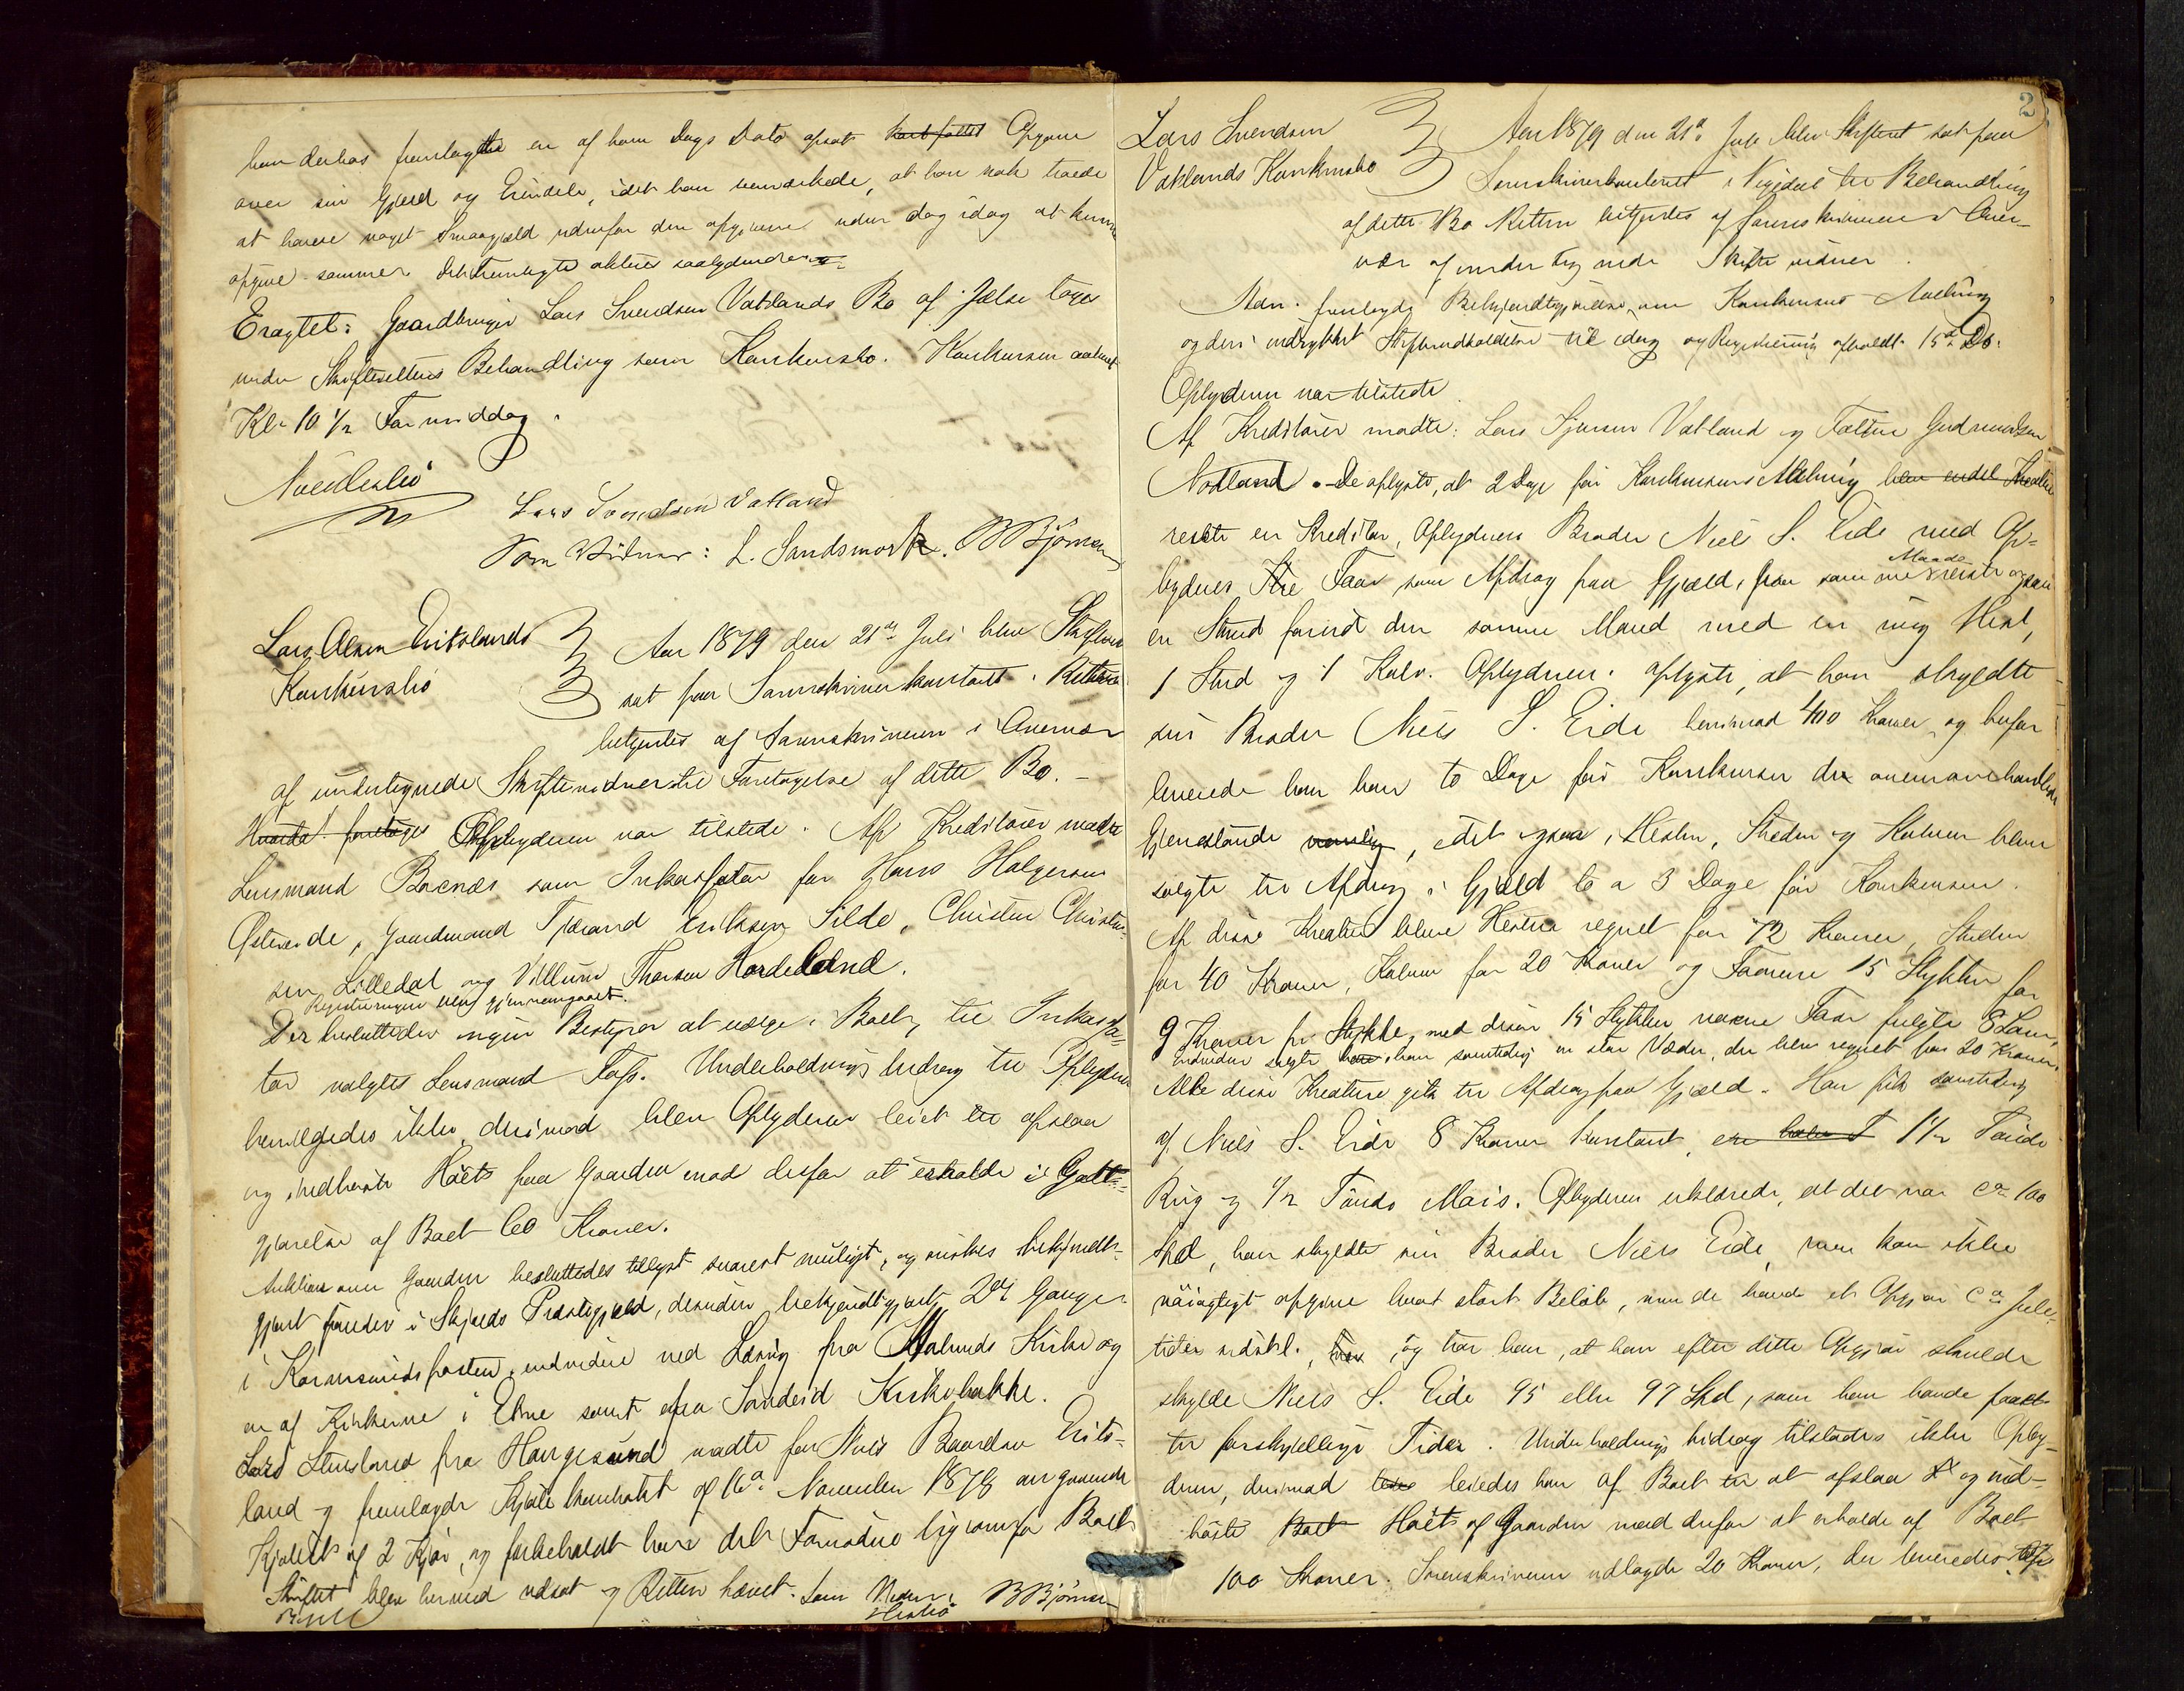 han derhos fremlagde en af ham Dags Dato opsat Opgave
over sin Gjæld og Eiendele, idet han bemærkede, at han nok troede
at have noget Smaagjæld udenfor den opgivne uden dog idag at kunne
opgive samme. Det fremlagte akteres saalydende:
Eragtet: Gaardbruger Lars Svendsen Vatlands Bo af Jælse tages
under Skifterettens Behandling som Konkursbo. Konkursen aabnet
Kl. 10 1/2 Formiddag.
Lars Svendsen Vatland
Som Vidner: L. Sandsmark. B Bjørnsen
Lars Olsen Eritslands
Konkursbo
Aar 1879 den 21de Juli blev Skifteret
sat paa Sorenskriverkontoret. Retten
betjentes af Sorenskriveren i Overvær
af undertegnede Skiftevidner til Foretagelse af dette Bo.
Opbyderen var tilstede. Af Kreditorer mødte
Lensmand som Inkassator for Hans Holgersen
Østeveide, Gaardmand Tjærand Eriksen Silde, Christen Christen-
sen Lilledal og Villum Thorsen Hordeland.
Registreringen blev gjennemgaaet.
Der besluttedes ingen Bestyrer at vælge i Boet, til Inkassa-
tor valgtes Lensmand Fass. Underholdningsbidrag til Opbyderen
bevilgedes ikke, derimod blev Opbyderen leiet til afslaa
og indhøste Høets paa Gaarden mod derfor at erholde i Godt-
gjørelse af Boet 60 Kroner.
Auktion over Gaarden besluttedes tillyst snarest muligt, og ønskes bekjendt-
gjort foruden i Skjolds Præstegjæld, desuden bekjendtgjort 2de Gange
i Karmsundsposten, endvidere ved Læsning fra Kirke og
en af Kirkerne i Etne samt fra Sandeid Kirkebakke.
Lars fra Haugesund mødte for Niels Baardsen Erits-
land og fremlagde Kjøbekontrakt af 16de November 1878 angaaende
Kjøbet af 2 Kjør, og forbeholdt sig det Fornødne ligeoverfor Boet.
Skiftet blev herved udsat og Retten hævet. Som Vidner: B Bjørnsen
2
Lars Svendsen
Vatlands Konkursbo
Aar 1879 den 21de Juli blev Skifteret sat paa
Sorenskriverkontoret i Vigedal til Behandling
af dette Bo. Retten betjentes af Sorenskriveren i Over-
vær af undertegnede Skiftevidner.
Adm. fremlagde Bekjendtgjørelse om Konkursens Aabning
og deri indrykket Skiftesamlingens til idag og Registrering afholdt 15de Ds.
Opbyderen var tilstede.
Af Kreditorer mødte: Lars Sjursen Vatland og Tollev Gudmundsen
Nodland. De oplyste, at 2 Dage før Konkursens Aabning blev endel Kreatur
reiste en Kreditor, Opbyderens Broder Niels S. Eide med Op-
byderens Faar som Afdrag paa Gjæld, som reiste ogsaa
Maade
en Stund forud den samme Mand med en ung Hest,
1 Stud og 1 Kalv. Opbyderen oplyste, at han skyldte
sin Broder Niels S. Eide henimod 400 Kroner, og herfor
leverede han ham to Dage før Konkursen de ovenomhandlede
Gjenstande, idet ogsaa Hesten, Studen og Kalven blev
solgte til Afdrag i Gjæld 2 a 3 Dage før Konkursen.
Af disse Kreaturer blev Hesten regnet for 72 Kroner, Studen
for 40 Kroner, Kalven for 20 Kroner og Faarene 15 Stykker for
9 Kroner pr Stykke, med disse 15 Stykker voxne Faar fulgte 8 Lam,
endvidere solgte han samtidig en stor Væder, der blev regnet for 20 Kroner.
Alle disse Kreaturer gik til Afdrag paa Gjæld. Han fik samtidig
af Niels S. Eide 8 Kroner kontant, en halv T 1 1/2 Tønde
Rug og 1/2 Tønde Mais. Opbyderen erklærede, at det var ca 100
Spd, han skyldte sin Broder Niels Eide, men kan ikke
nøiagtigt opgive hvor stort Beløb, men de havde et Opgjør ca Jule-
tider sidstl., og tror han, at han efter dette Opgjør skulde
skylde Niels S. Eide 95 eller 97 Spd, som han havde faaet
til forskjellige Tider. Underholdningsbidrag tilstodes ikke Opby-
deren, derimod leiedes han af Boet til at afslaa og ind-
høste Boet Høets af Gaarden mod derfor at erholde af Boet
100 Kroner. Sorenskriveren udlagde 20 Kroner, der leveredes